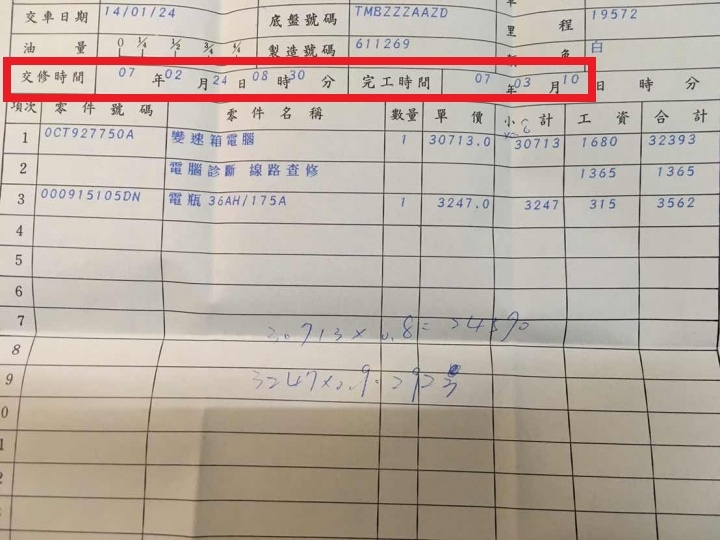 交車日期 14/01/24 底盤號碼 TMBZZZAAZD 里程 19572
油量 0 ¼ ½ ¾ ¼ 製造號碼 611269 色 白
交修時間 07年02月24日08時30分 完工時間 07年03月10日 時 分
項次 零件號碼 零件名稱 數量 單價 小計 工資 合計
1 0CT927750A 變速箱電腦 1 30713.0 30713 1680 32393
2 電腦診斷 線路查修 1365 1365
3 000915105DN 電瓶 36AH/175A 1 3247.0 3247 315 3562
4
5
6
7 30713×0.8=24570
8
9 3247×0.9=2923
0
1
2
3